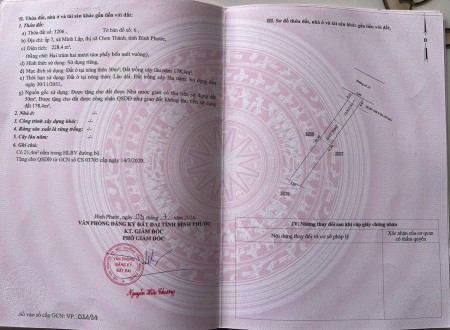 II. Thửa đất, nhà ở và tài sản khác gắn liền với đất:
1. Thửa đất:
a) Thửa đất số: 3206 , Tờ bản đồ số: 6 ,
b) Địa chỉ: ấp 7, xã Minh Lập, thị xã Chơn Thành, tỉnh Bình Phước,
c) Diện tích: 228,4 m²,
(Bằng chữ: Hai trăm hai mươi tám phẩy bốn mét vuông),
d) Hình thức sử dụng: Sử dụng riêng,
đ) Mục đích sử dụng: Đất ở tại nông thôn 50m²; Đất trồng cây lâu năm 178,4m²,
e) Thời hạn sử dụng: Đất ở tại nông thôn: Lâu dài. Đất trồng cây lâu năm: Sử dụng đến ngày 30/11/2051,
g) Nguồn gốc sử dụng: Được tặng cho đất được Nhà nước giao có thu tiền sử dụng đất 50m²; Được tặng cho đất được công nhận QSDĐ như giao đất không thu tiền sử dụng đất 178,4m².
2. Nhà ở: -/-
3. Công trình xây dựng khác: -/-
4. Rừng sản xuất là rừng trồng: -/-
5. Cây lâu năm: -/-
6. Ghi chú:
Có 21,4m² nằm trong HLBV đường bộ.
Tặng cho QSDĐ từ GCN số CS 03705 cấp ngày 14/5/2020.
Bình Phước, ngày 03 tháng
VĂN PHÒNG ĐĂNG KÝ ĐẤT ĐAI TỈNH BÌNH PHƯỚC
KT. GIÁM ĐỐC
PHÓ GIÁM ĐỐC
VĂN PHÒNG
ĐĂNG KÝ
ĐẤT ĐAI
Nguyễn Hữu Thường
Số vào sổ cấp GCN: VP
III. Sơ đồ thửa đất, nhà ở và tài sản khác gắn liền với đất:
3207
IV. Những thay đổi sau khi cấp giấy chứng nhận
Nội dung thay đổi và cơ sở pháp lý
Xác nhận của cơ quan
có thẩm quyền